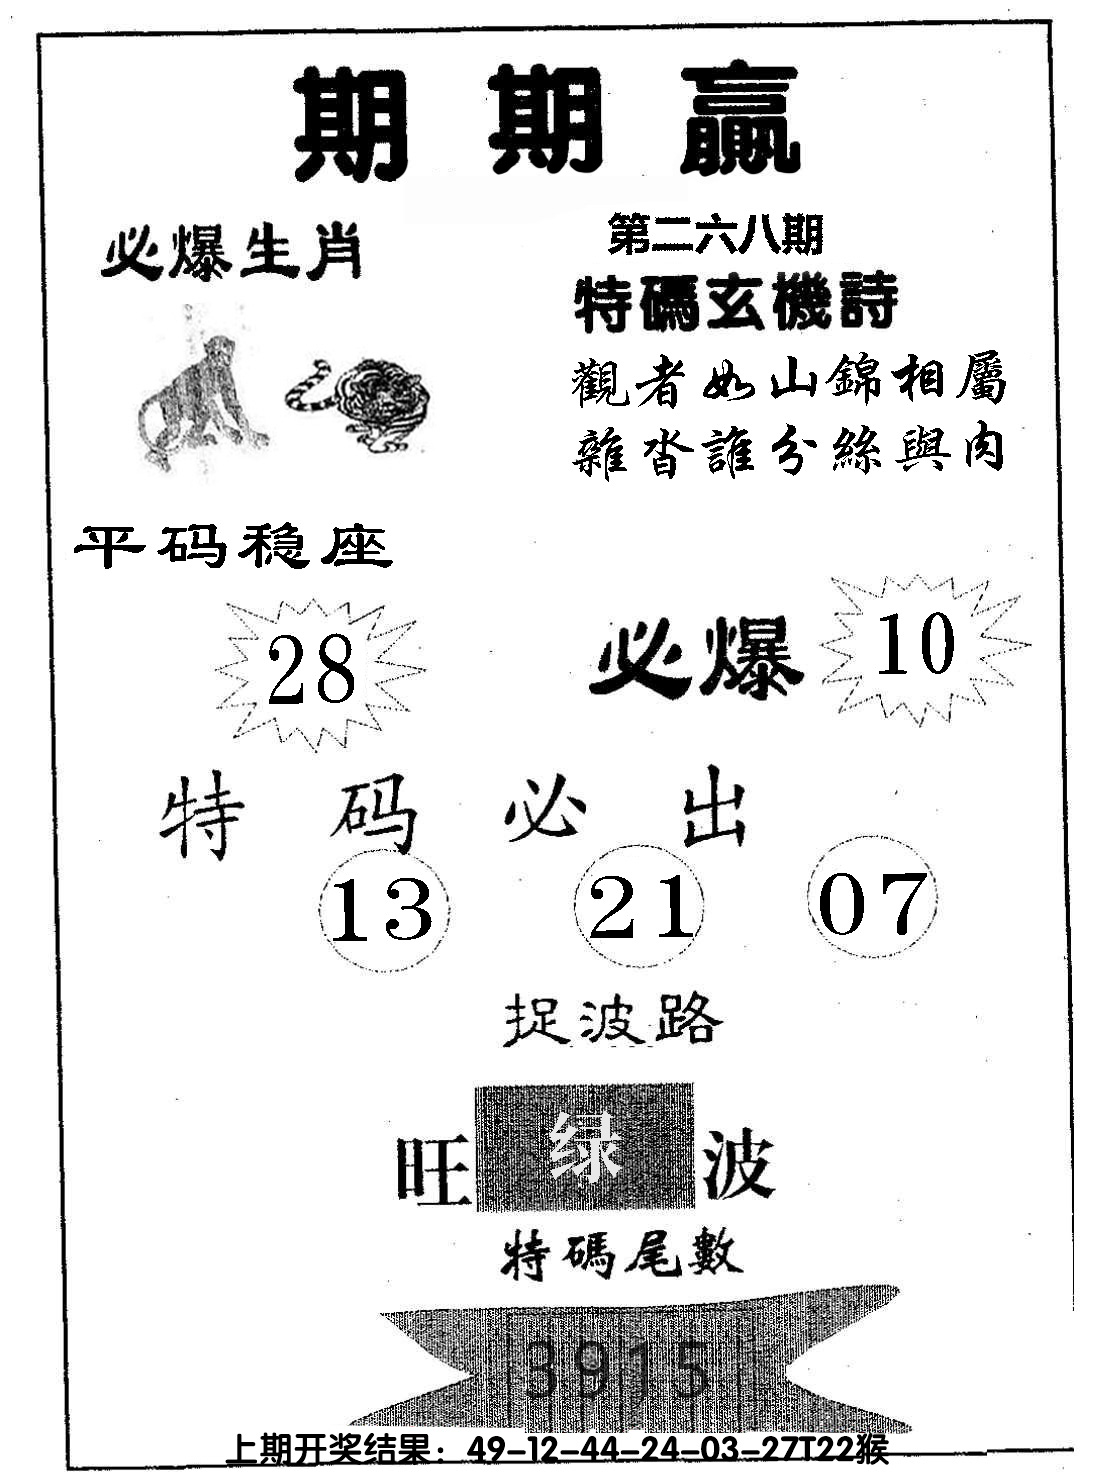 期期贏
必爆生肖
第二六八期
特碼玄機詩
觀者如山錦相屬
雜沓誰分絲與肉
平码稳座
28
必爆 10
特码必出
13 21 07
捉波路
旺 绿 波
特碼尾數
3915
上期开奖结果：49-12-44-24-03-27T22猴